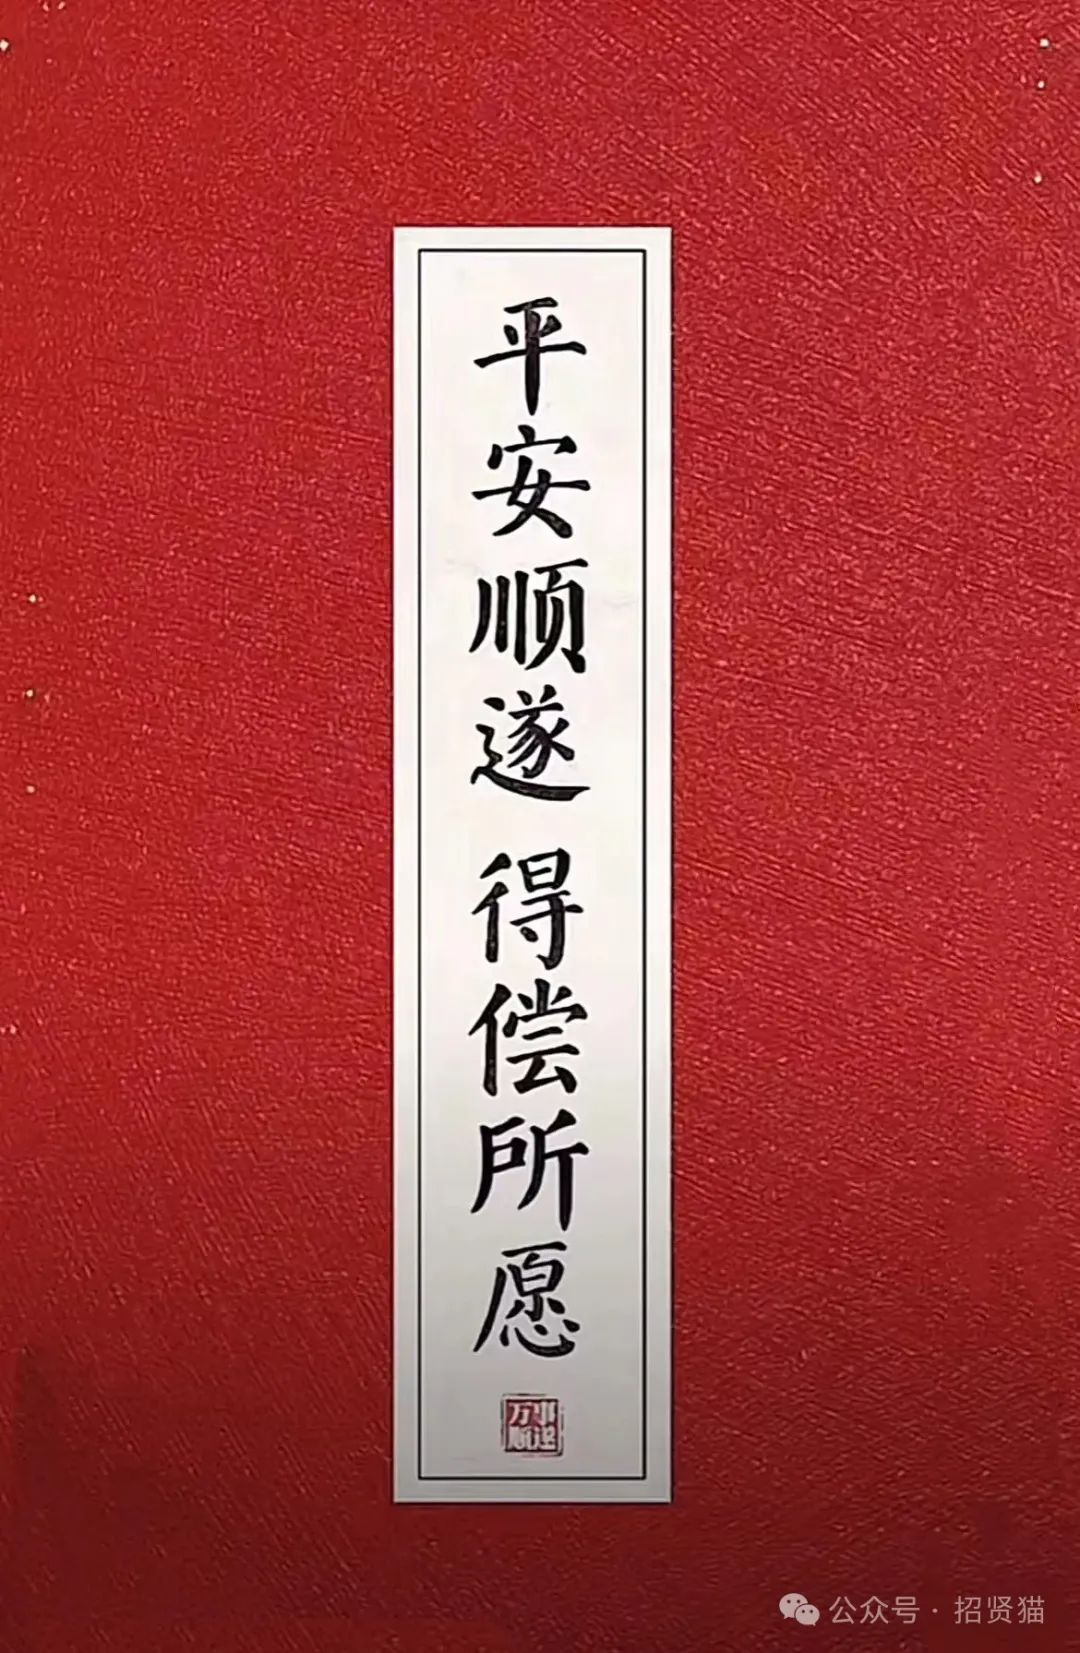 平安顺遂 得偿所愿
万事
顺遂
公众号·招贤猫